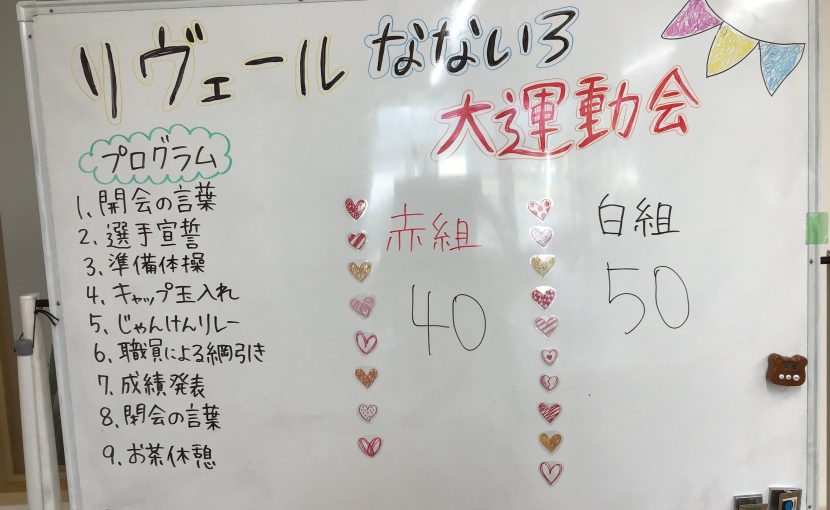 リヴェール なないろ
大運動会
プログラム
1、開会の言葉
2、選手宣誓
3、準備体操
4、キャップ玉入れ
5、じゃんけんリレー
6、職員による綱引き
7、成績発表
8、閉会の言葉
9、お茶休憩
赤組
40
白組
50